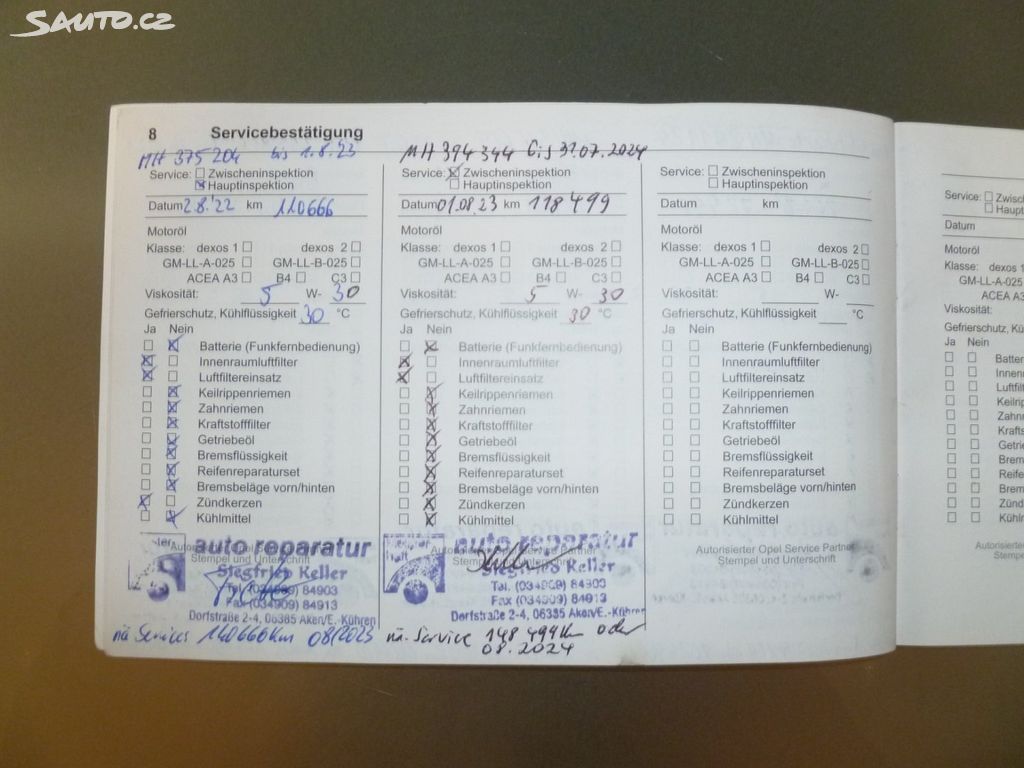 SAUTO.CZ
8 Servicebestätigung
MH 375204 bis 1.8.23
Service: Zwischeninspektion
Hauptinspektion
Datum 2.8.'22 km 110666
Motoröl
Klasse: dexos 1 dexos 2
GM-LL-A-025 GM-LL-B-025
ACEA A3 B4 C3
Viskosität: 5 W- 30
Gefrierschutz, Kühlflüssigkeit 30 °C
Ja Nein
Batterie (Funkfernbedienung)
Innenraumluftfilter
Luftfiltereinsatz
Keilrippenriemen
Zahnriemen
Kraftstofffilter
Getriebeöl
Bremsflüssigkeit
Reifenreparaturset
Bremsbeläge vorn/hinten
Zündkerzen
Kühlmittel
auto reparatur
Stempel und Unterschrift
Siegfried Keller
Tel. (034909) 84903
Fax (034909) 84913
Dorfstraße 2-4, 06385 Aken/E.-Kühren
nä Services 140666km 08/2023
MH 394344 bis 31.07.2024
Service: Zwischeninspektion
Hauptinspektion
Datum 01.08.23 km 118499
Motoröl
Klasse: dexos 1 dexos 2
GM-LL-A-025 GM-LL-B-025
ACEA A3 B4 C3
Viskosität: 5 W- 30
Gefrierschutz, Kühlflüssigkeit 30 °C
Ja Nein
Batterie (Funkfernbedienung)
Innenraumluftfilter
Luftfiltereinsatz
Keilrippenriemen
Zahnriemen
Kraftstofffilter
Getriebeöl
Bremsflüssigkeit
Reifenreparaturset
Bremsbeläge vorn/hinten
Zündkerzen
Kühlmittel
auto reparatur
Autorisierter Opel Service Partner
Stempel und Unterschrift
Siegfried Keller
Tel. (034909) 84903
Fax (034909) 84913
Dorfstraße 2-4, 06385 Aken/E.-Kühren
nä. Service 148 499km oder
08.2024
Service: Zwischeninspektion
Hauptinspektion
Datum km
Motoröl
Klasse: dexos 1 dexos 2
GM-LL-A-025 GM-LL-B-025
ACEA A3 B4 C3
Viskosität: W-
Gefrierschutz, Kühlflüssigkeit °C
Ja Nein
Batterie (Funkfernbedienung)
Innenraumluftfilter
Luftfiltereinsatz
Keilrippenriemen
Zahnriemen
Kraftstofffilter
Getriebeöl
Bremsflüssigkeit
Reifenreparaturset
Bremsbeläge vorn/hinten
Zündkerzen
Kühlmittel
Autorisierter Opel Service Partner
Stempel und Unterschrift
Service: Zwischeninsp
Haupt
Datum
Motoröl
Klasse: dexos 1
GM-LL-A-025
ACEA A3
Viskosität:
Gefrierschutz, Kühl
Ja Nein
Batter
Innen
Luftfi
Keilrip
Zahn
Krafts
Getrie
Brems
Reifen
Brem
Zünd
Kühl
Autorisie
Stem